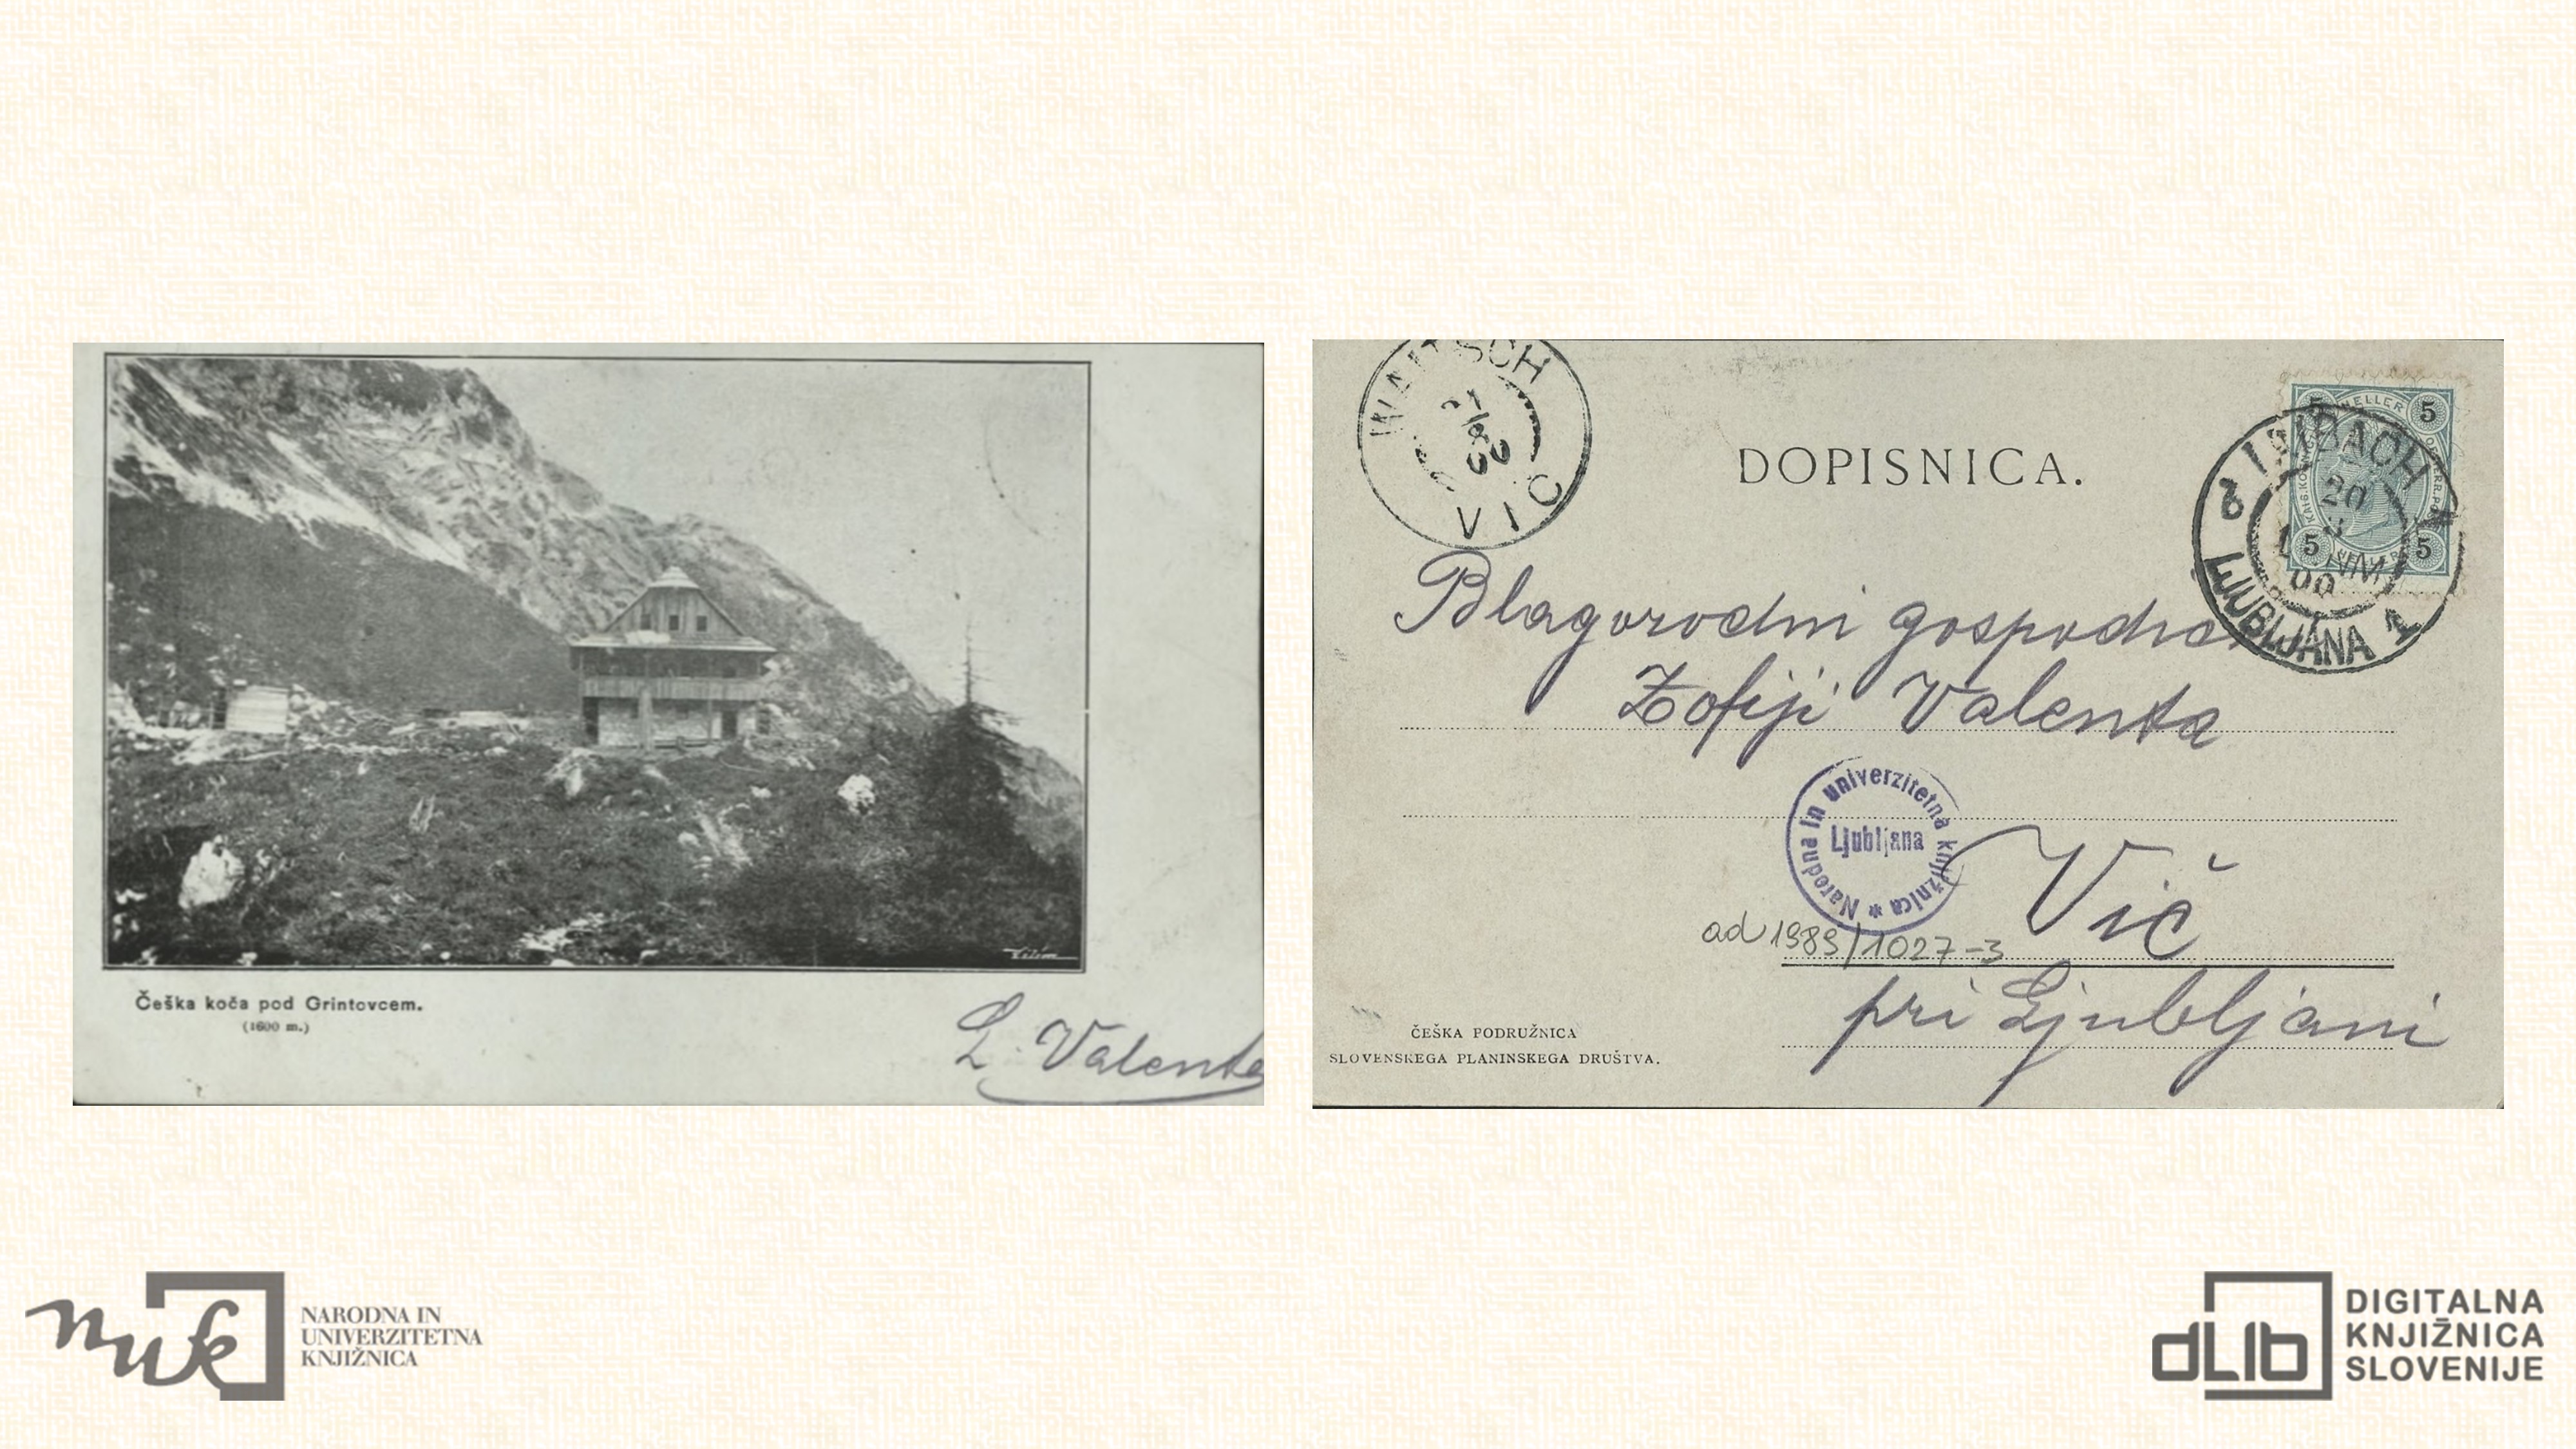 Češka koča pod Grintovcem.
(1600 m.)
L. Valenta
WAITSCH
VIČ
DOPISNICA.
5 HELLER 5
5 HELLER 5
LAIBACH 1
20
8
00
LJUBLJANA 1
Blagorodni gospodic
Zofiji Valenta
Narodna in univerzitetna knjižnica *
Ljubljana
Vič
ad 1989/1027-3
pri Ljubljani
ČEŠKA PODRUŽNICA
SLOVENSKEGA PLANINSKEGA DRUŠTVA.
nuk
NARODNA IN
UNIVERZITETNA
KNJIŽNICA
dLib
DIGITALNA
KNJIŽNICA
SLOVENIJE